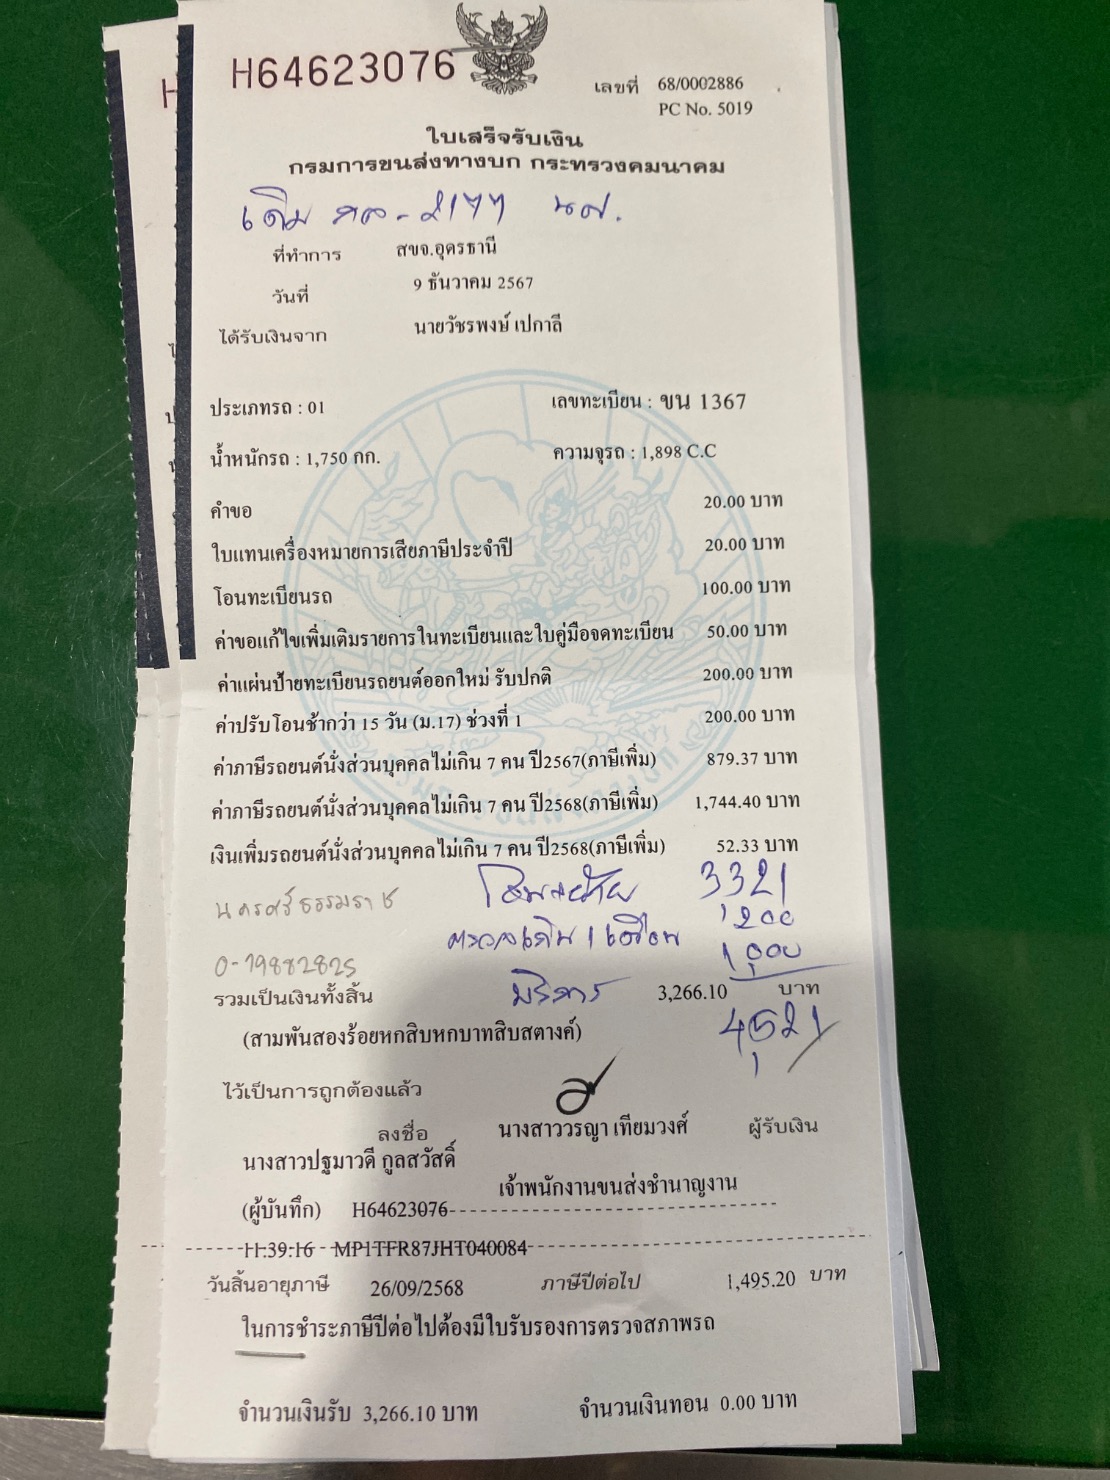 H64623076
เลขที่ 68/0002886
PC No. 5019
ใบเสร็จรับเงิน
กรมการขนส่งทางบก กระทรวงคมนาคม
เดิม - 2177 นศ.
ที่ทำการ สขจ.อุดรธานี
วันที่ 9 ธันวาคม 2567
ได้รับเงินจาก นายวัชรพงษ์ เปกาลี
ประเภทรถ : 01 เลขทะเบียน : ขน 1367
น้ำหนักรถ : 1,750 กก. ความจุรถ : 1,898 C.C
คำขอ 20.00 บาท
ใบแทนเครื่องหมายการเสียภาษีประจำปี 20.00 บาท
โอนทะเบียนรถ 100.00 บาท
ค่าขอแก้ไขเพิ่มเติมรายการในทะเบียนและใบคู่มือจดทะเบียน 50.00 บาท
ค่าแผ่นป้ายทะเบียนรถยนต์ออกใหม่ รับปกติ 200.00 บาท
ค่าปรับโอนช้ากว่า 15 วัน (ม.17) ช่วงที่ 1 200.00 บาท
ค่าภาษีรถยนต์นั่งส่วนบุคคลไม่เกิน 7 คน ปี2567(ภาษีเพิ่ม) 879.37 บาท
ค่าภาษีรถยนต์นั่งส่วนบุคคลไม่เกิน 7 คน ปี2568(ภาษีเพิ่ม) 1,744.40 บาท
เงินเพิ่มรถยนต์นั่งส่วนบุคคลไม่เกิน 7 คน ปี2568(ภาษีเพิ่ม) 52.33 บาท
3321
นครศรีธรรมราช 1200
0-79882825 1000
รวมเป็นเงินทั้งสิ้น บริการ 3,266.10 บาท
(สามพันสองร้อยหกสิบหกบาทสิบสตางค์) 4,521
ไว้เป็นการถูกต้องแล้ว
ลงชื่อ นางสาววรญา เทียมวงศ์ ผู้รับเงิน
นางสาวปฐมาวดี กูลสวัสดิ์
เจ้าพนักงานขนส่งชำนาญงาน
(ผู้บันทึก) H64623076
11:39:16 MP1TFR87JHT040084
วันสิ้นอายุภาษี 26/09/2568 ภาษีปีต่อไป 1,495.20 บาท
ในการชำระภาษีปีต่อไปต้องมีใบรับรองการตรวจสภาพรถ
จำนวนเงินรับ 3,266.10 บาท จำนวนเงินทอน 0.00 บาท